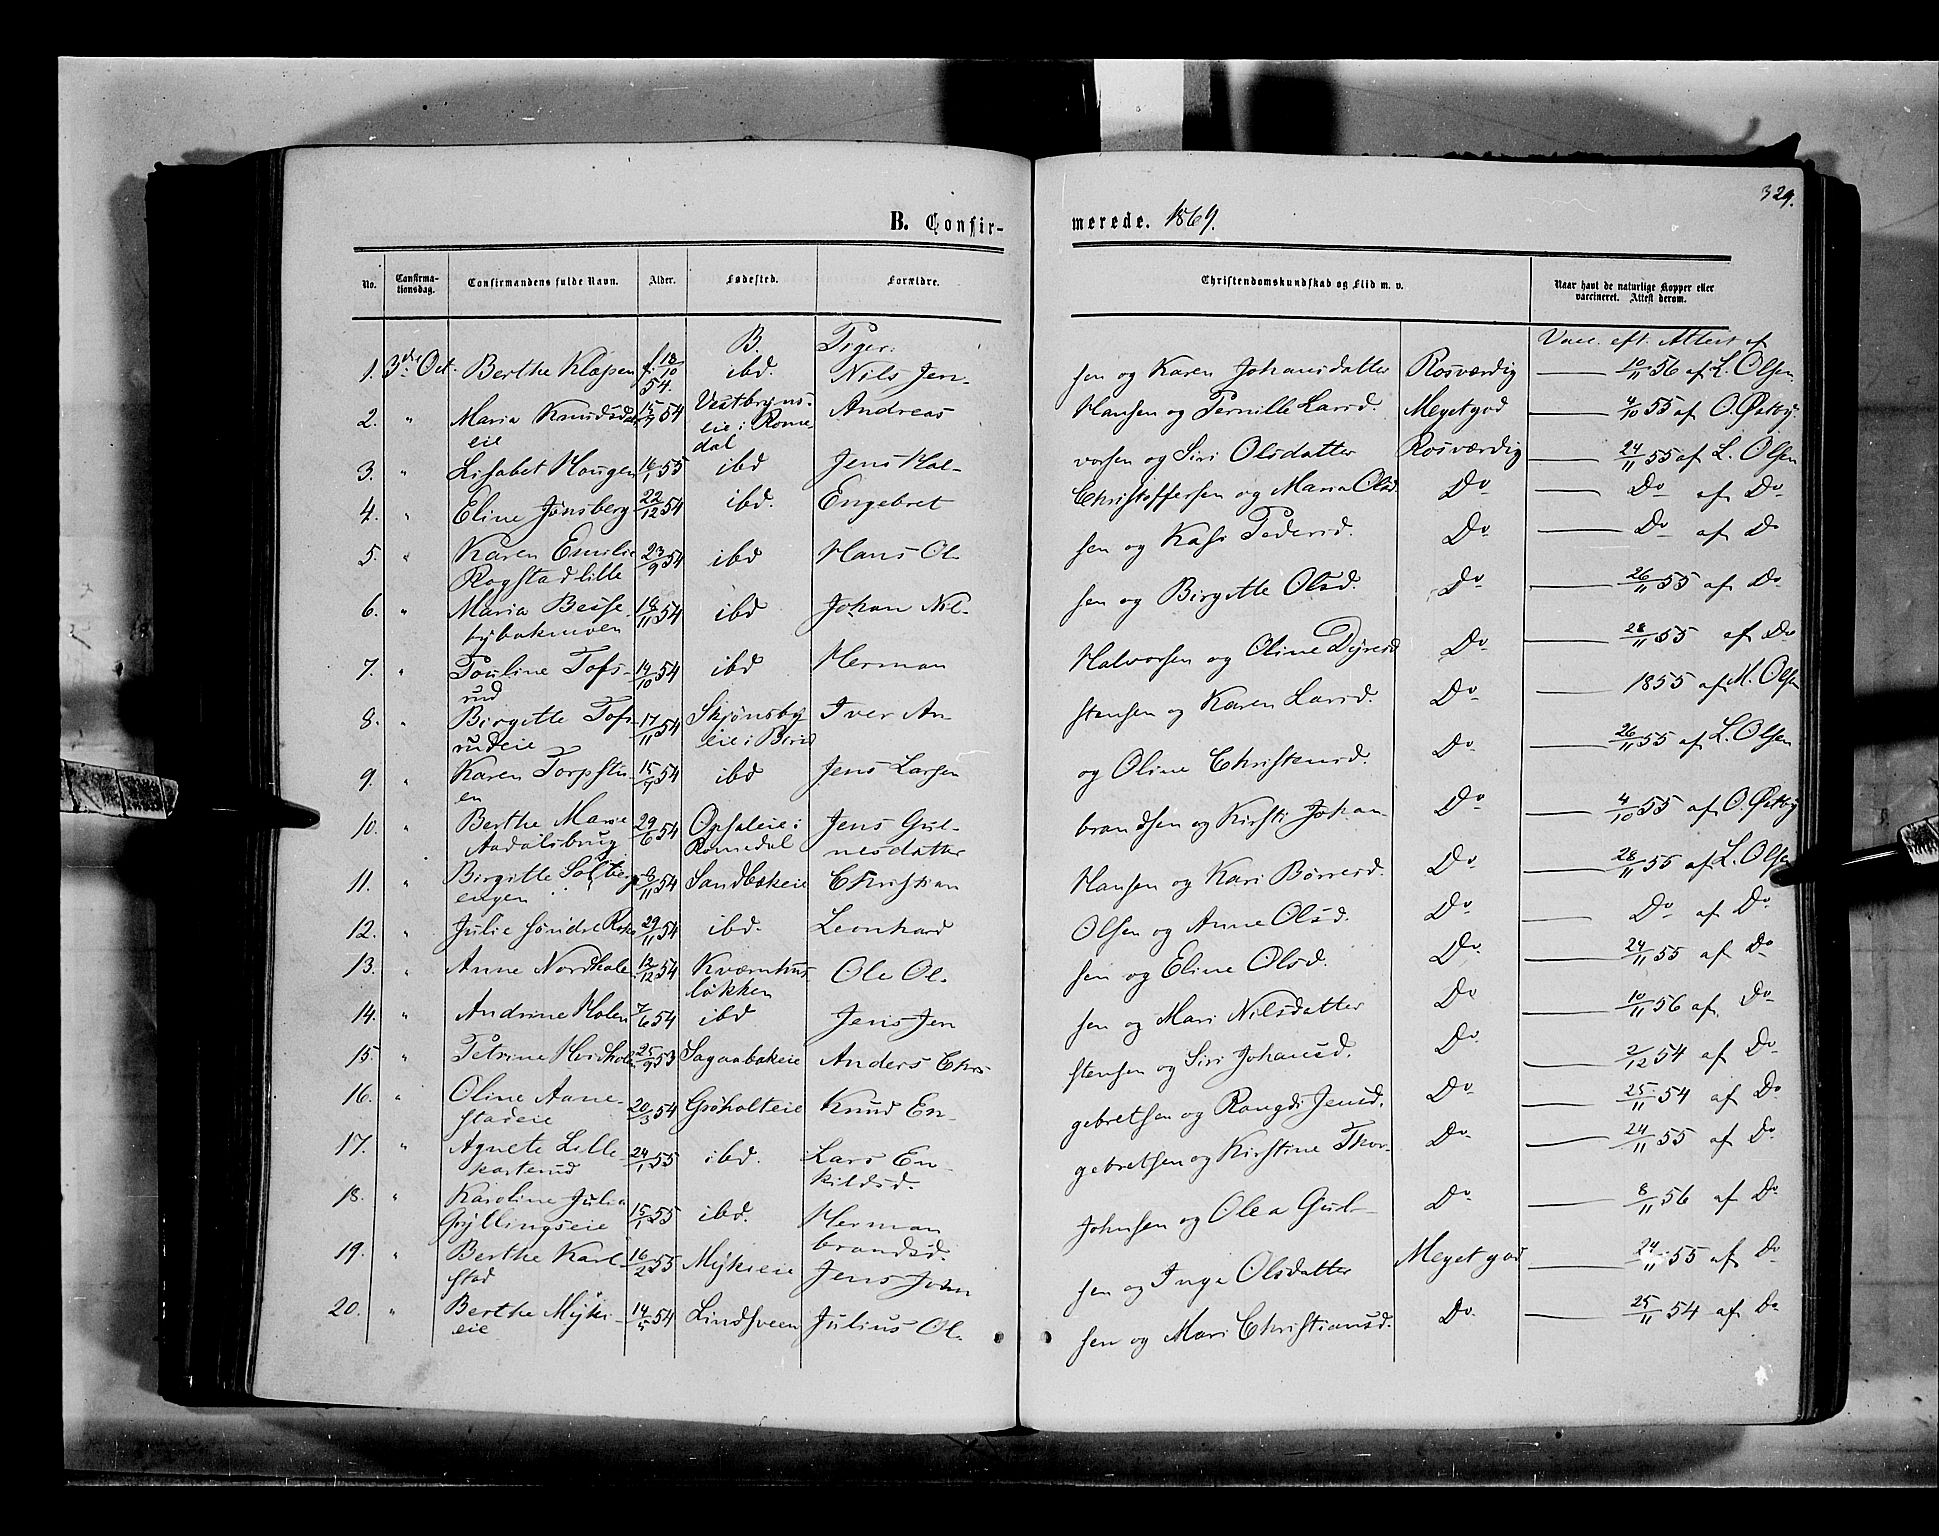 329.
B. Confir-
merede. 1869.
No. Confirma-tionsdag. Confirmandens fulde Navn. Alder. Fødested. Forældre. Christendomskundskab og Flid m. v. Naar havt de naturlige Kopper eller vaccineret. Attest derom.
B. Piger. Vacc. eft. Attest af
1. 3die Oct. Berthe Klæpen f. 18/10 54. ibd. Nils Jen- sen og Karen Johansdatter Rosværdig — 10/11 56 af L. Olsen
2. " Maria Knudsdatter eie 15/7 54 Vestbyns- eie i Rome dal Andreas Hansen og Pernille Larsd. Meget god — 4/10 55 af O. Østby.
3. " Lisabet Hougen 16/1 55 ibd Jens Hal- vorsen og Siri Olsdatter Rosværdig — 24/11 55 af L. Olsen
4. " Eline Jønsberg 22/12 54 ibd. Engebret Christoffersen og Maria Olsd. Do — Do af Do
5. " Karen Emilie Rogstad lille 23/9 54 ibd Hans Ol- sen og Kasi Pedersd. Do — Do af Do
6. " Maria 18/11 54 ibd Johan Nil- sen og Birgitte Olsd. Do — 26/11 55 af Do
7. " Pouline Tofs- rud 14/10 54 ibd Herman Halvorsen og Oline Dyresd Do — 28/11 55 af Do
8. " Birgitte Tofs- rudeie 17/11 54 Skjønsby eie i Birid Iver An- stensen og Karen Larsd. Do — 1855 af M. Olsen
9. " Karen Torpstu- en 15/7 54 ibd Jens Larsen og Oline Christensd. Do — 26/11 55 af L. Olsen
10. " Berthe Marie Aadalsbrug 29/6 54 Opsaleie i Romedal Jens Gul- brandsen og Kirsti Johan- nesdatter Do — 4/10 55 af O. Østby
11. " Birgitte Solberg engen 8/11 54 Sandbækeie Christian Hansen og Kari Børresd. Do — 28/11 55 af L. Olsen
12. " Julie søndre Roko 29/11 54 ibd. Leonhard Olsen og Anne Olsd. Do — Do af Do
13. " Anne Nordhole 12/12 54 Kværnhus- løkken Ole Ol- sen og Eline Olsd. Do — 24/11 55 af Do
14. " Andrine Holen 7/6 54 ibd Jens Jen sen og Mari Nilsdatter Do — 10/11 56 af Do
15. " Petrine 25/9 53 Sagaabakeie Anders Chri stensen og Siri Johansd. Do — 2/12 54 af Do
16. " Oline Aane- stadeie 20/3 54 Grøholteie Knud En- gebretsen og Rangdi Jensd. Do — 25/11 54 af Do
17. " Agnete Lille- karterud 24/1 55 ibd. Lars En- gebretsen og Kirstine Thor- kildsd. Do — 24/11 55 af Do
18. " Karoline Julia Gyllingseie 15/1 55 ibd. Herman Johnsen og Olea Gul- brandsd. Do — 8/11 56 af Do
19. " Berthe Karl- stad 16/2 55 Mykieie Jens John sen og Inge Olsdatter Meget god — 24/11 55 af Do
20. " Berthe Myki- eie 14/5 54 Lindsveen Julius Ol- sen og Mari Christiansd. Do — 25/11 54 af Do